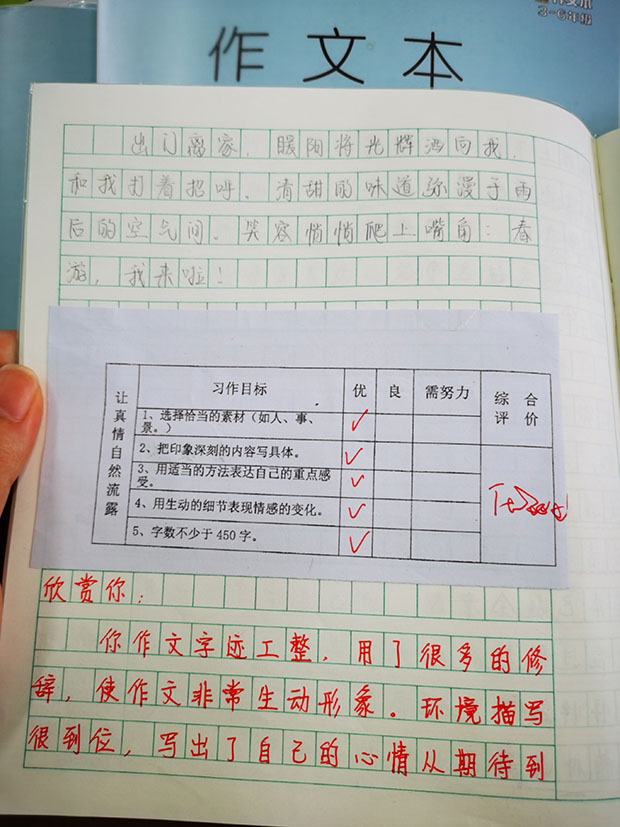 作文本
3-6年级
作文本
出门离家，暖阳将光辉洒向我，
和我打着招呼，清甜的味道弥漫于雨
后的空气间。笑容悄悄爬上嘴角：春
游，我来啦！
让真情自然流露
习作目标 优 良 需努力 综合评价
1、选择恰当的素材（如人、事、
景。） ✓
2、把印象深刻的内容写具体。 ✓
3、用适当的方法表达自己的重点感
受。 ✓
4、用生动的细节表现情感的变化。 ✓
5、字数不少于450字。 ✓
欣赏你：
你作文字迹工整，用了很多的修
辞，使作文非常生动形象。环境描写
很到位，写出了自己的心情从期待到